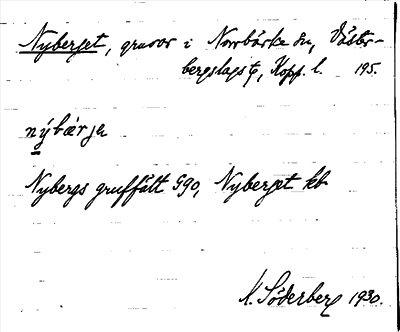 Nyberget, gruvor i Norrbärke sn, Väster-
bergslags tg, Kopp. l. 195.
nýbærja
Nybergs gruffält G90, Nyberget kb
K. Söderberg 1930.